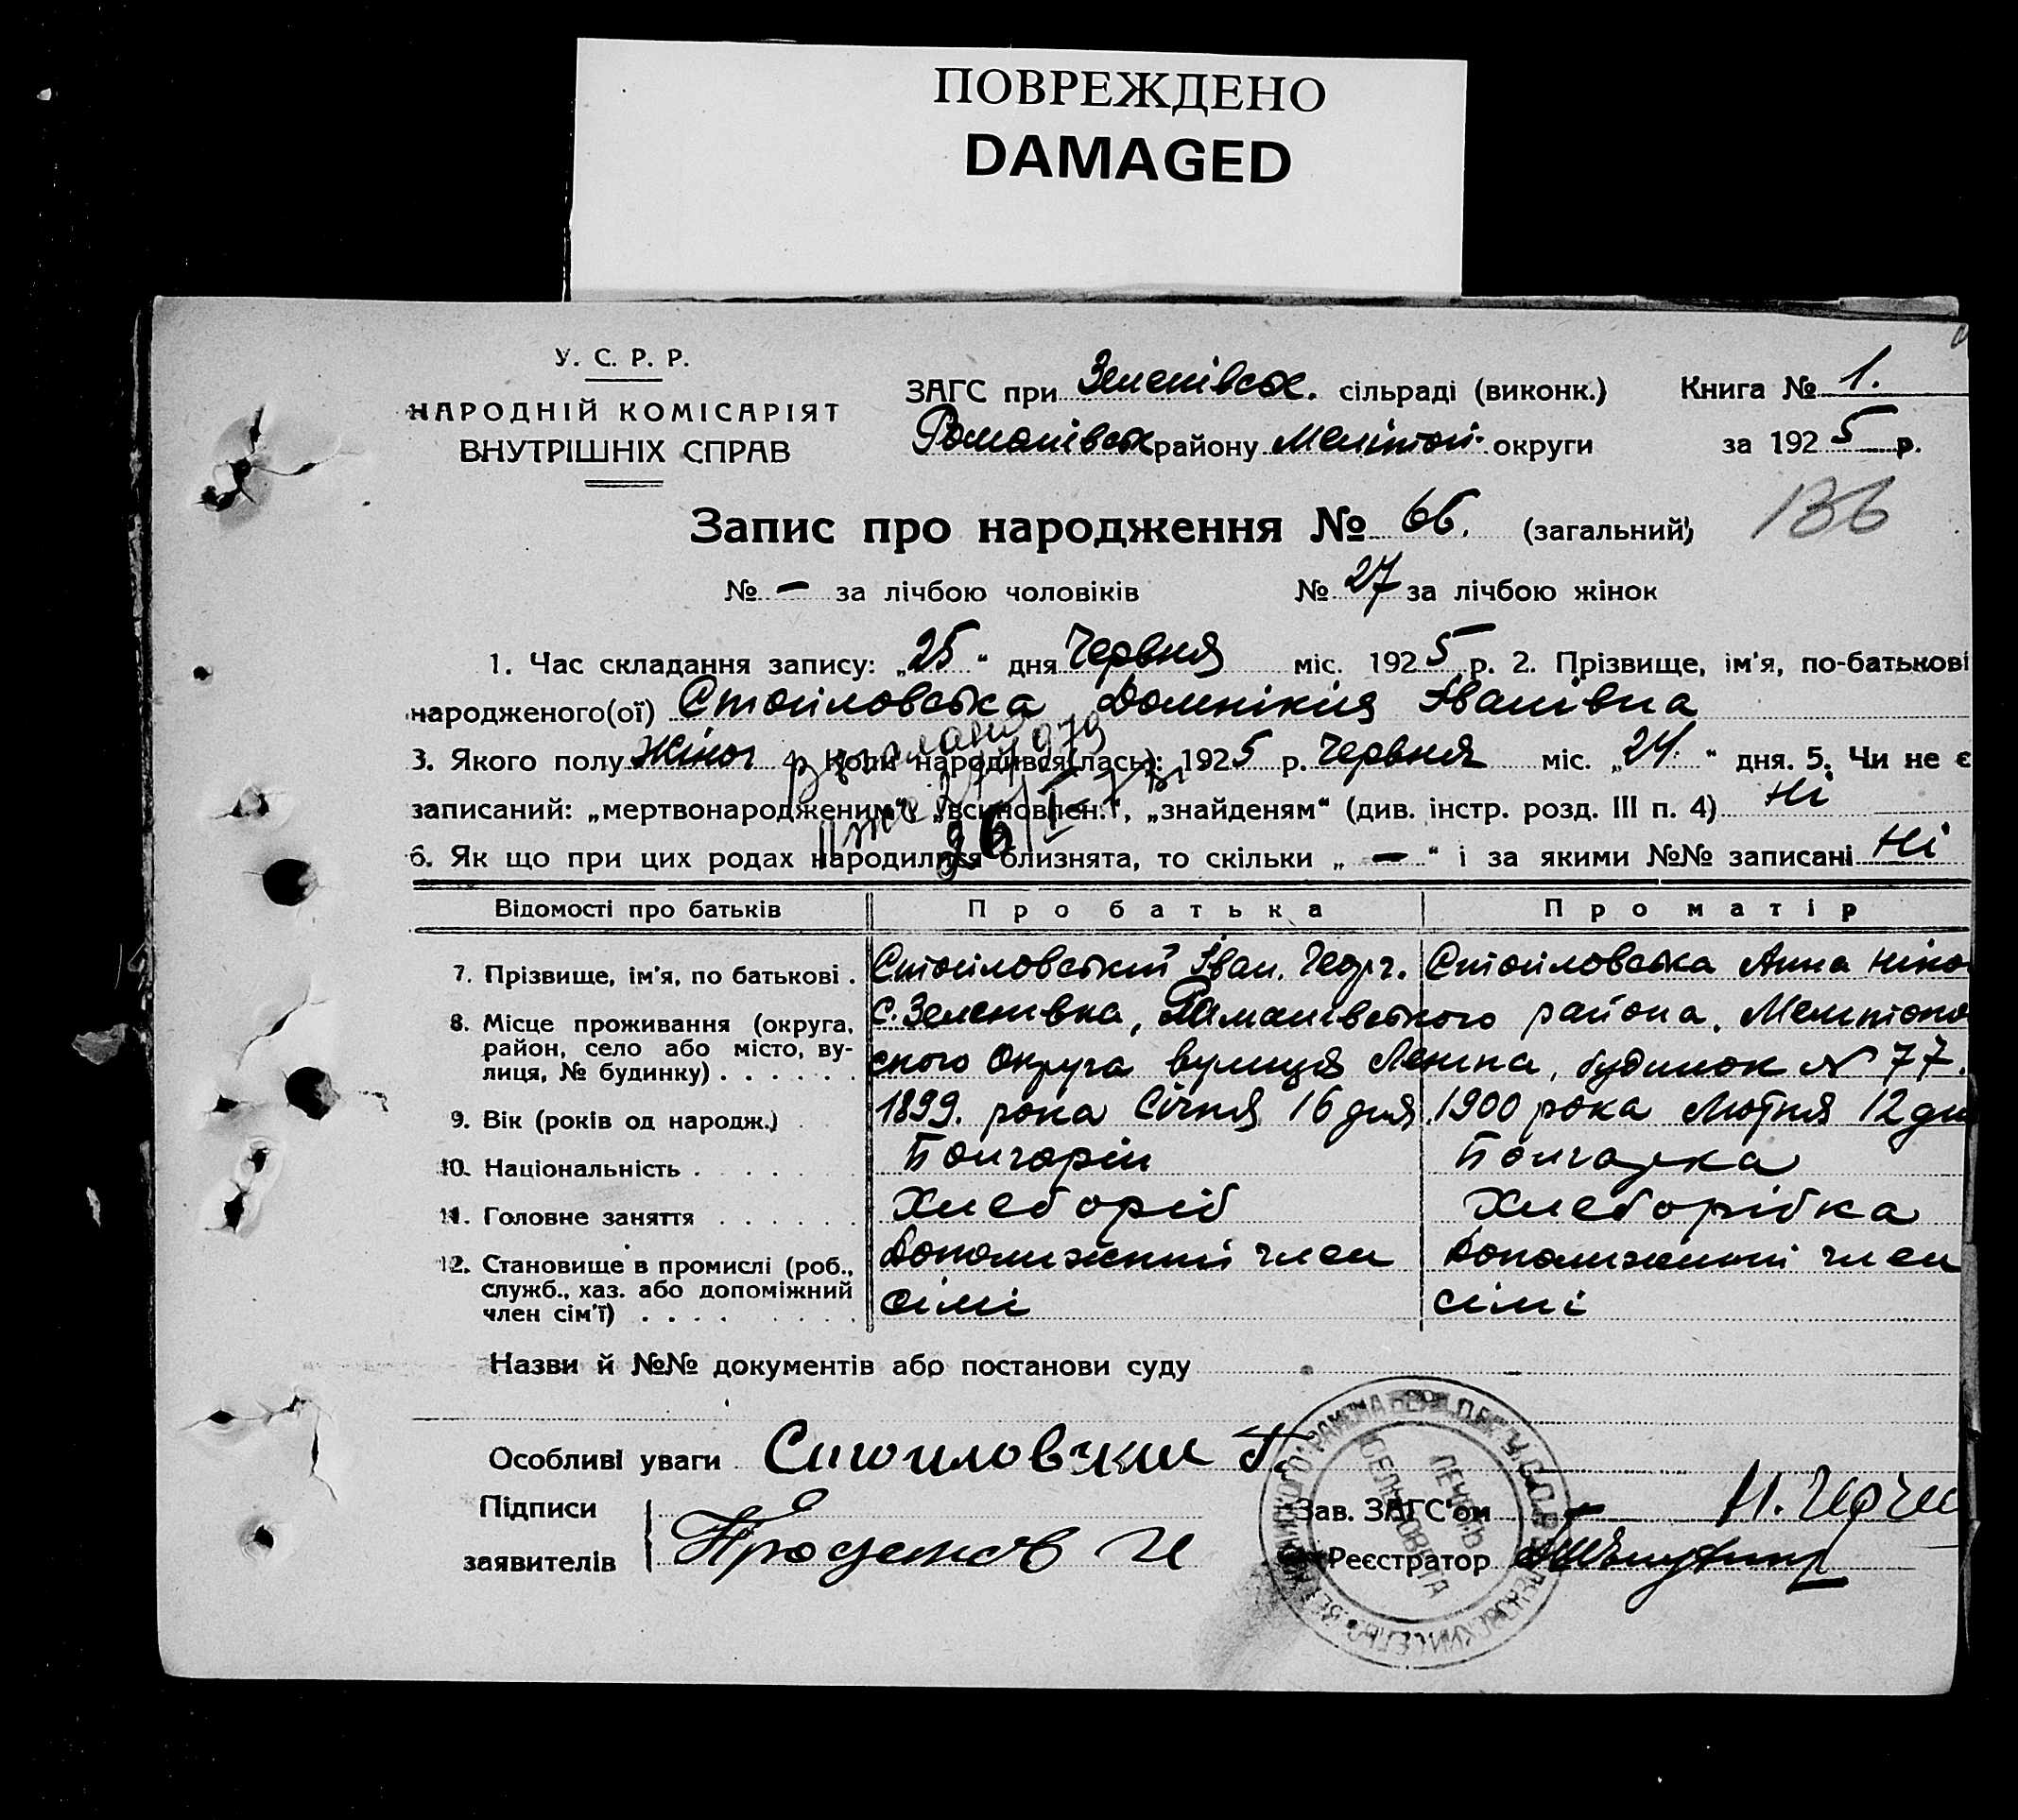 ПОВРЕЖДЕНО
DAMAGED
У. С. Р. Р.
НАРОДНІЙ КОМІСАРІЯТ
ВНУТРІШНІХ СПРАВ
ЗАГС при Зеленівськ. сільраді (виконк.) Книга № 1.
Романівськ району Мелітоп. округи за 1925 р.
136
Запис про народження № 66. (загальний)
№ – за лічбою чоловіків № 27 за лічбою жінок
1. Час складання запису: „25“ дня Червня міс. 1925 р. 2. Прізвище, ім'я, по-батькові
народженого(ої) Стоиловська Домнікия Іванівна
3. Якого полу Жіноч 4. Коли народився(лась): 1925 р. Червня міс. „24“ дня. 5. Чи не є
записаний: „мертвонародженим“, „всиновлен.“, „знайденям“ (див. інстр. розд. III п. 4) Ні
6. Як що при цих родах народилися близнята, то скільки „ – “ і за якими №№ записані Ні
Відомості про батьків Про батька Про матір
7. Прізвище, ім'я, по батькові . Стоиловський Іван. Георг. Стоиловська Анна Ніко
8. Місце проживання (округа, район, село або місто, вулиця, № будинку) . . . . . . С. Зеленівка, Романівського района, Мелитопо
ского Округа вулиця Леніна, будинок № 77.
9. Вік (років од народж.) 1899. рока Січня 16 дня 1900 рока Лютня 12 дн
10. Національність . . . . Болгарін Болгарка
11. Головне заняття . . . . . . Хлеборіб Хлеборібка
12. Становище в промислі (роб., служб., хаз. або допоміжний член сім'ї) . . . . Допоміжний член Допоміжний член
сімі сімі
Назви й №№ документів або постанови суду
Особливі уваги Стоиловски Г.
Підписи Зав. ЗАГС'ом
заявителів Проданов И Реєстратор